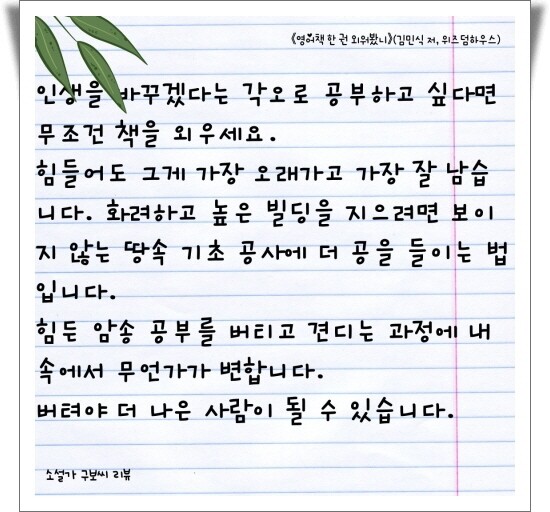 《영어책 한 권 외워봤니》(김민식 저, 위즈덤하우스)
인생을 바꾸겠다는 각오로 공부하고 싶다면
무조건 책을 외우세요.
힘들어도 그게 가장 오래가고 가장 잘 남습
니다. 화려하고 높은 빌딩을 지으려면 보이
지 않는 땅속 기초 공사에 더 공을 들이는 법
입니다.
힘든 암송 공부를 버티고 견디는 과정에 내
속에서 무언가가 변합니다.
버텨야 더 나은 사람이 될 수 있습니다.
소설가 구보씨 리뷰